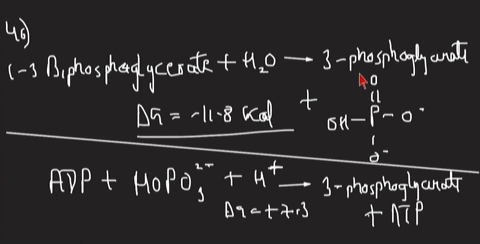 46)
1-3 Biphosphoglycerate + H₂O → 3-phosphoglycerate
ΔG = -11.8 Kcal + OH-P-O⁻
O
O⁻
ADP + HOPO₃²⁻ + H⁺ → 3-phosphoglycerate
ΔG = +7.3 + ATP